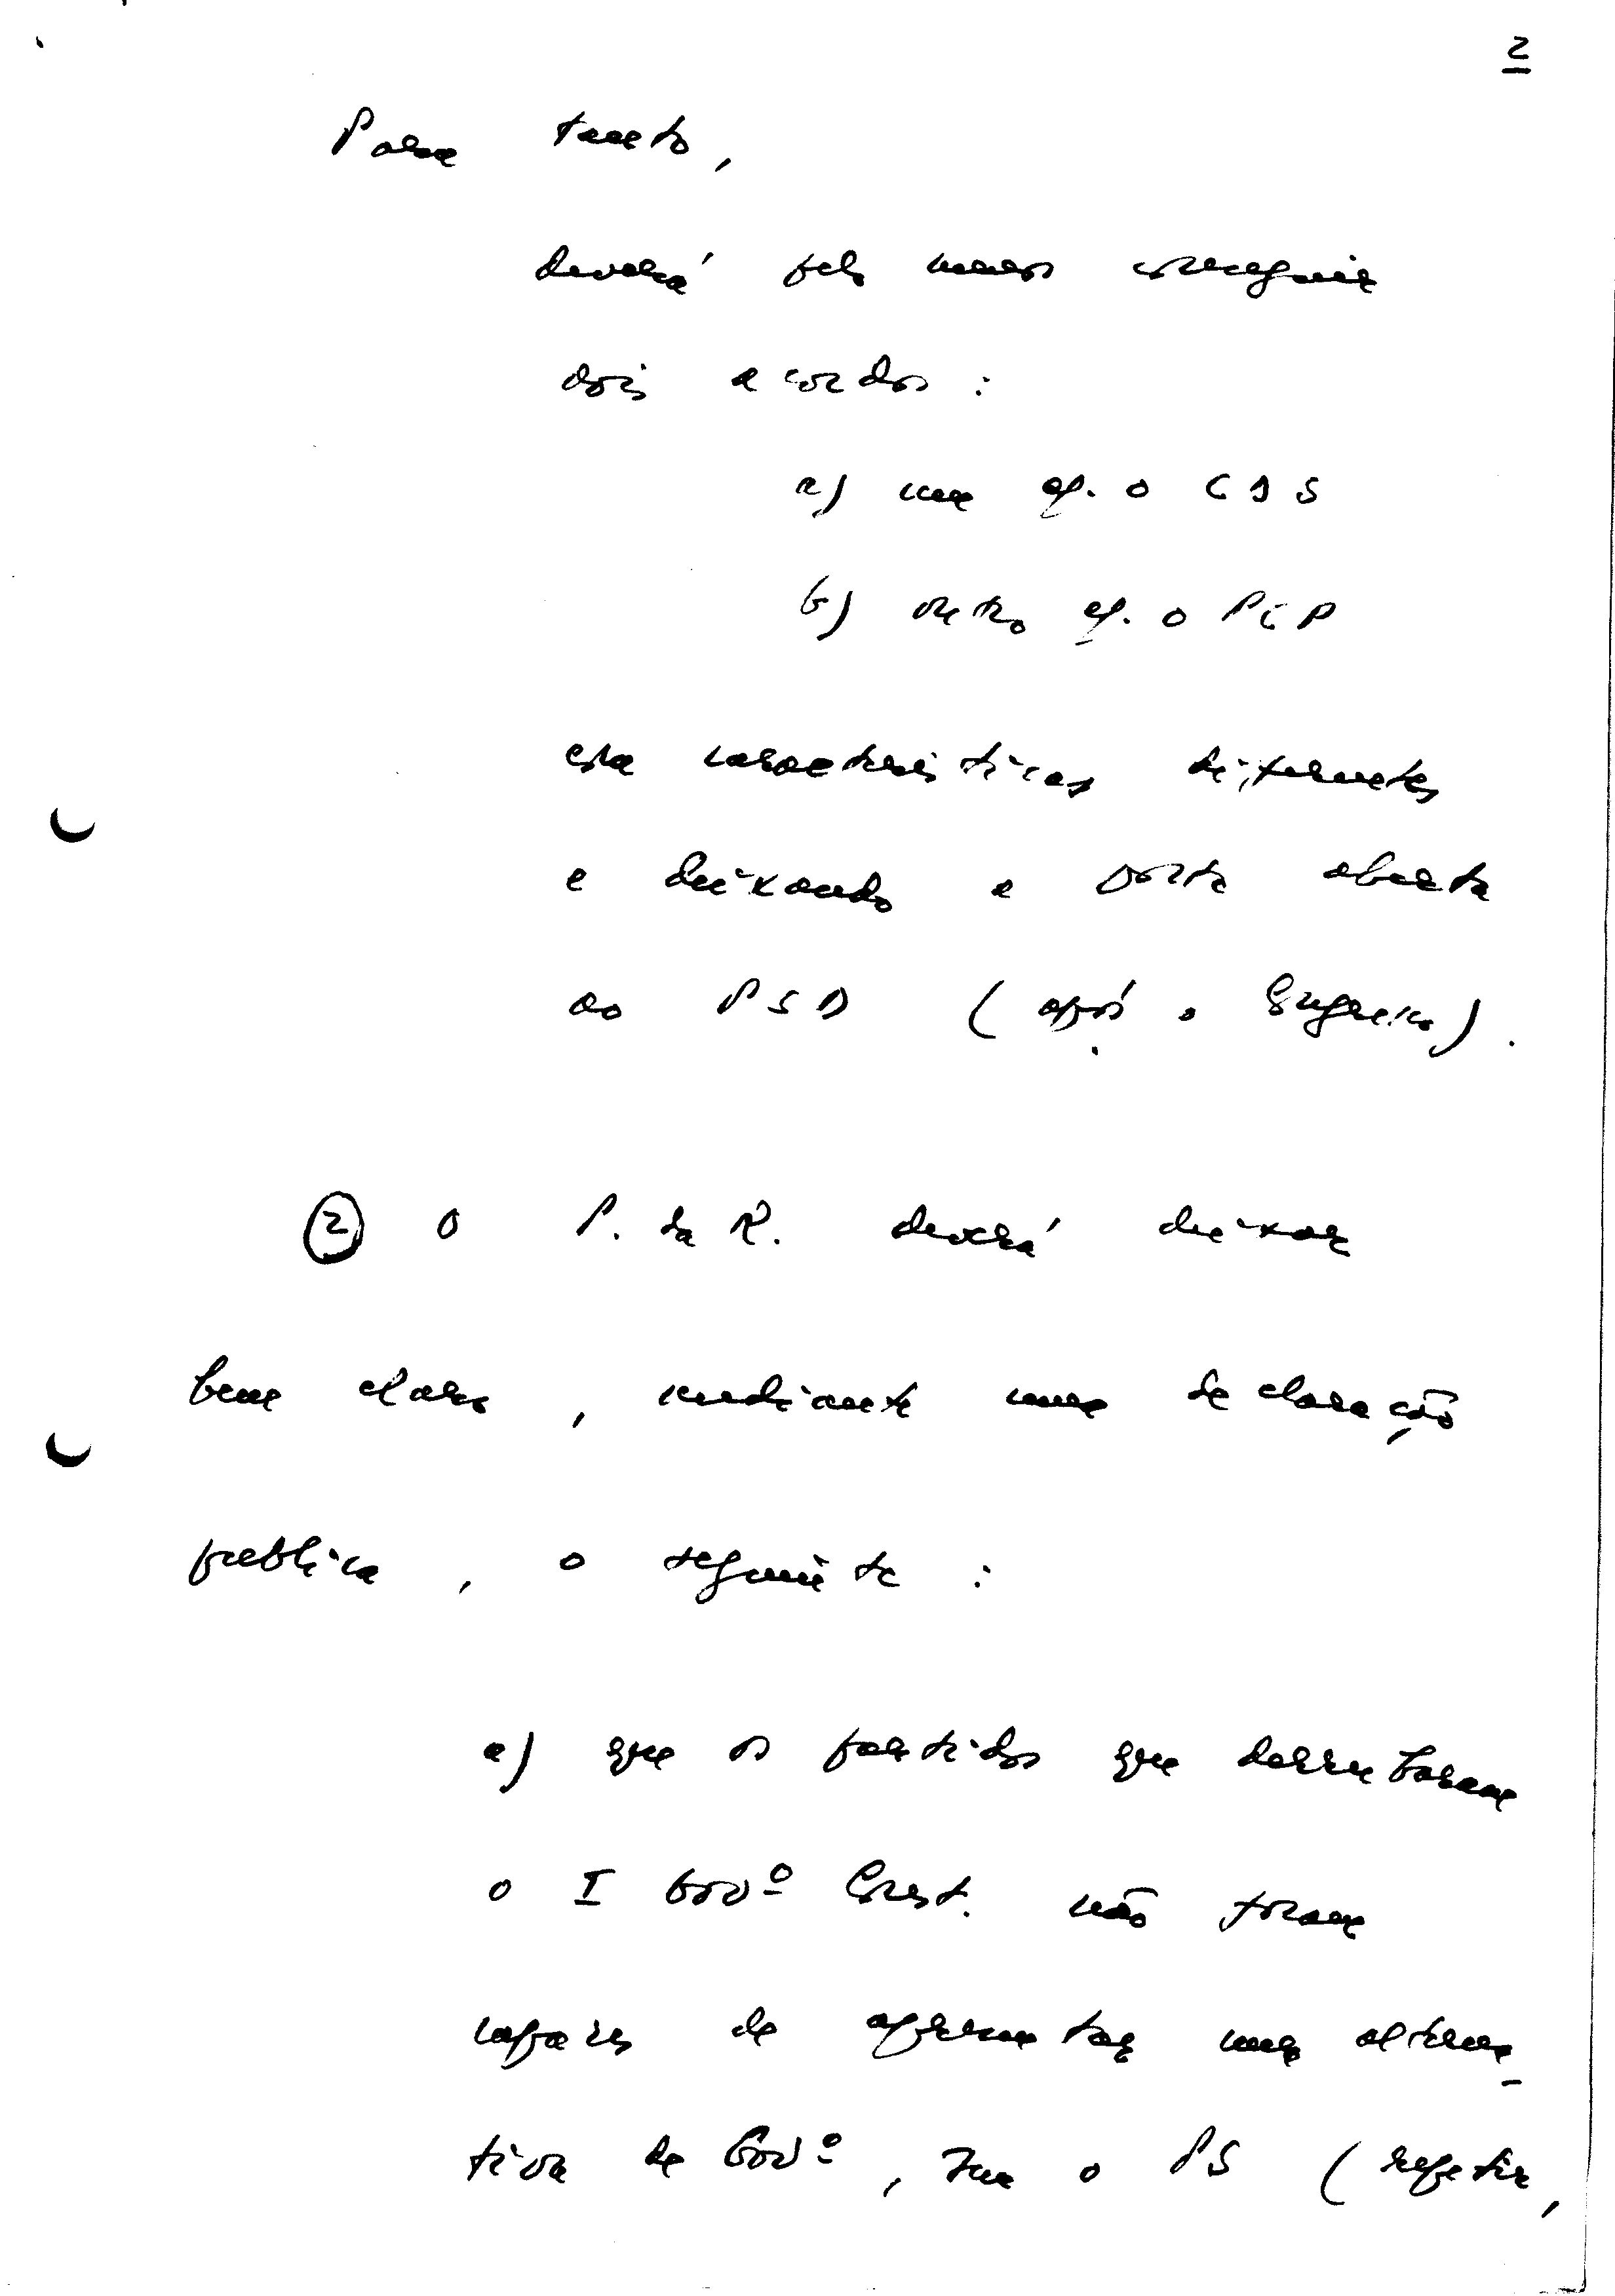 2
Para tanto,
deverá pelo menos conseguir
dois acordos:
a) um c/. o CDS
b) outro c/. o PCP
com características diferentes
e deixando a porta aberta
ao PSD (após o Congresso).
② O P. da R. deverá deixar
bem claro, mediante uma declaração
pública, o seguinte:
a) que os partidos que derrubaram
o I Govº Const. não foram
capazes de apresentar uma alterna_
tiva de Govº, sem o PS (repetir,